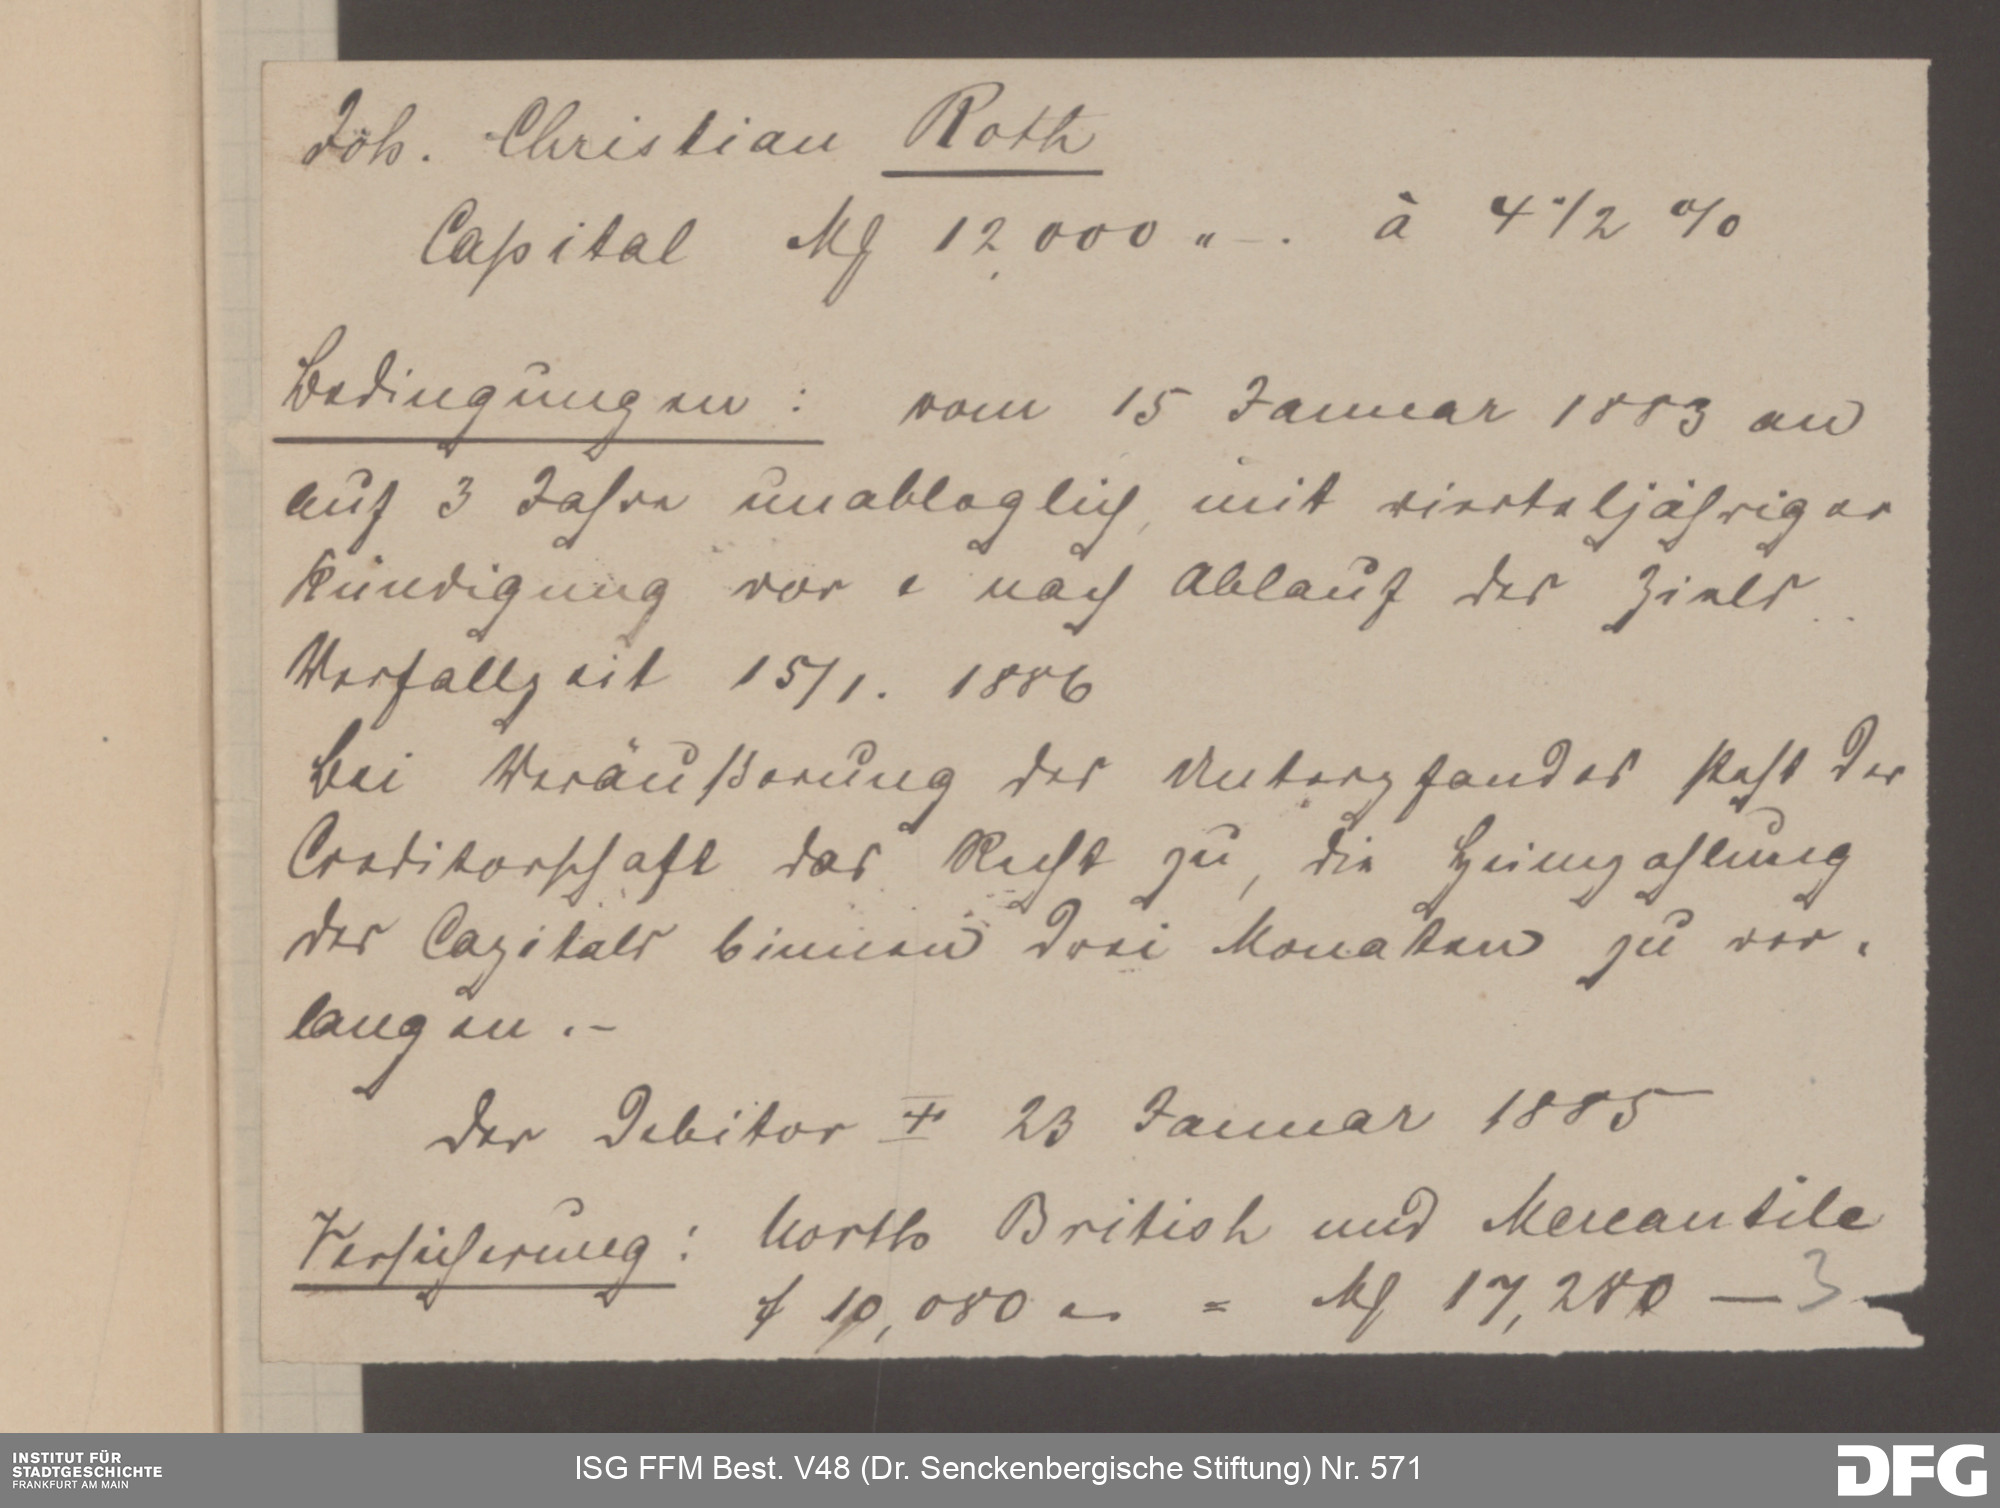 Joh. Christian Roth
Capital Mf 12,000 „ – . à 4 1/2 %
Bedingungen : vom 15 Januar 1883 an
auf 3 Jahre unableglich, mit vierteljähriger
Kündigung vor & nach Ablauf des Ziels
Verfallzeit 15/1. 1886
Bei Veräußerung des Unterpfandes steht der
Creditorschaft das Recht zu, die Heimzahlung
des Capitals binnen drei Monaten zu ver-
langen. –
der Debitor + 23 Januar 1885
Versicherung : North British und Mercantile
f 10,080 = Mf 17,280 — 3
INSTITUT FÜR
STADTGESCHICHTE
FRANKFURT AM MAIN
ISG FFM Best. V48 (Dr. Senckenbergische Stiftung) Nr. 571
DFG